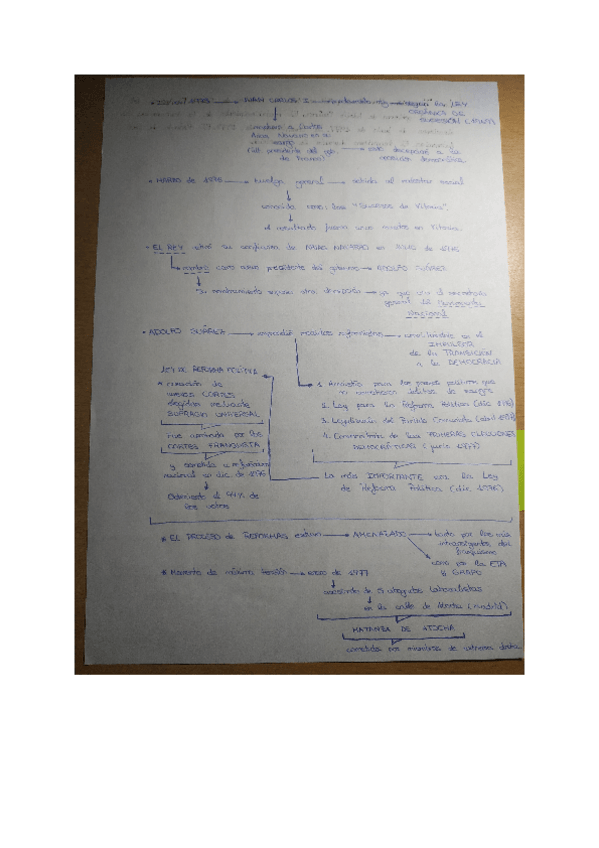 JUAN CARLOS I
según la LEY
ORGÁNICA DE
SUCESIÓN
Arias Navarro
esto decepcionó a la
oposición democrática.
• MARZO de 1976 → huelga general → debido al malestar social
conocida como: los "Sucesos de Vitoria".
el resultado fueron varias muertes en Vitoria.
• EL REY retiró su confianza de ARIAS NAVARRO en JULIO de 1976
nombró como nuevo presidente del gobierno → ADOLFO SUÁREZ
Su nombramiento supuso otra decepción → ya que era el secretario
general del Movimiento
Nacional
• ADOLFO SUÁREZ → medidas reformistas → convirtiéndose en el
IMPULSOR
de la TRANSICIÓN
a la DEMOCRACIA
LEY DE REFORMA POLÍTICA
creación de
unas CORTES
elegidas mediante
SUFRAGIO UNIVERSAL
1. Amnistía para los presos políticos que
no cometieron delitos de sangre
2. Ley para la Reforma Política (dic. 1976)
3. Legalización del Partido Comunista (abril 1977)
4. Convocatoria de las PRIMERAS ELECCIONES
DEMOCRÁTICAS (junio 1977)
fue aprobada por las
CORTES FRANQUISTA
y sometida a referéndum
nacional en dic. de 1976
Obteniendo el 94% de
los votos
La más IMPORTANTE era la Ley
de Reforma Política (dic. 1976)
* EL PROCESO de REFORMAS estuvo → AMENAZADO → tanto por los más
intransigentes del
franquismo
como por la ETA
y GRAPO
* Momento de máxima tensión → enero de 1977
asesinato de 5 abogados laboralistas
en la calle de Atocha (Madrid)
MATANZA DE ATOCHA
cometida por miembros de extrema derecha